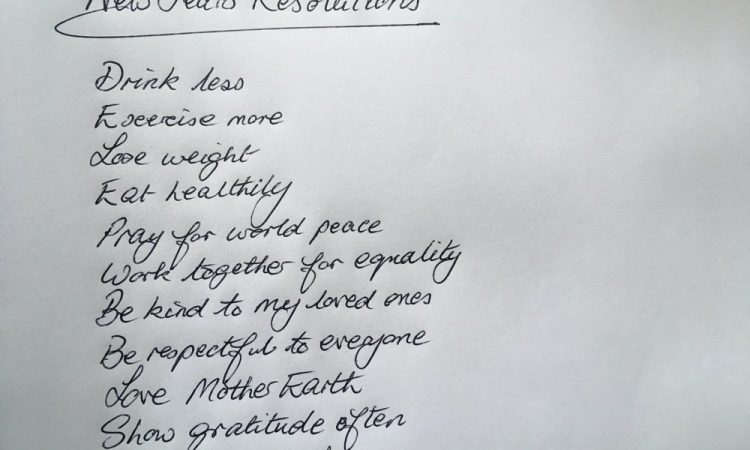 New Years Resolutions
Drink less
Exercise more
Lose weight
Eat healthily
Pray for world peace
Work together for equality
Be kind to my loved ones
Be respectful to everyone
Love Mother Earth
Show gratitude often